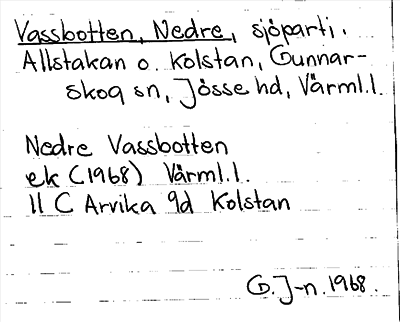 Vassbotten, Nedre, sjöparti.
Allstakan o. Kolstan, Gunnar-
skog sn, Jösse hd, Värml.l.
Nedre Vassbotten
ek (1968) Värml.l.
11 C Arvika 9d Kolstan
G. J-n. 1968.